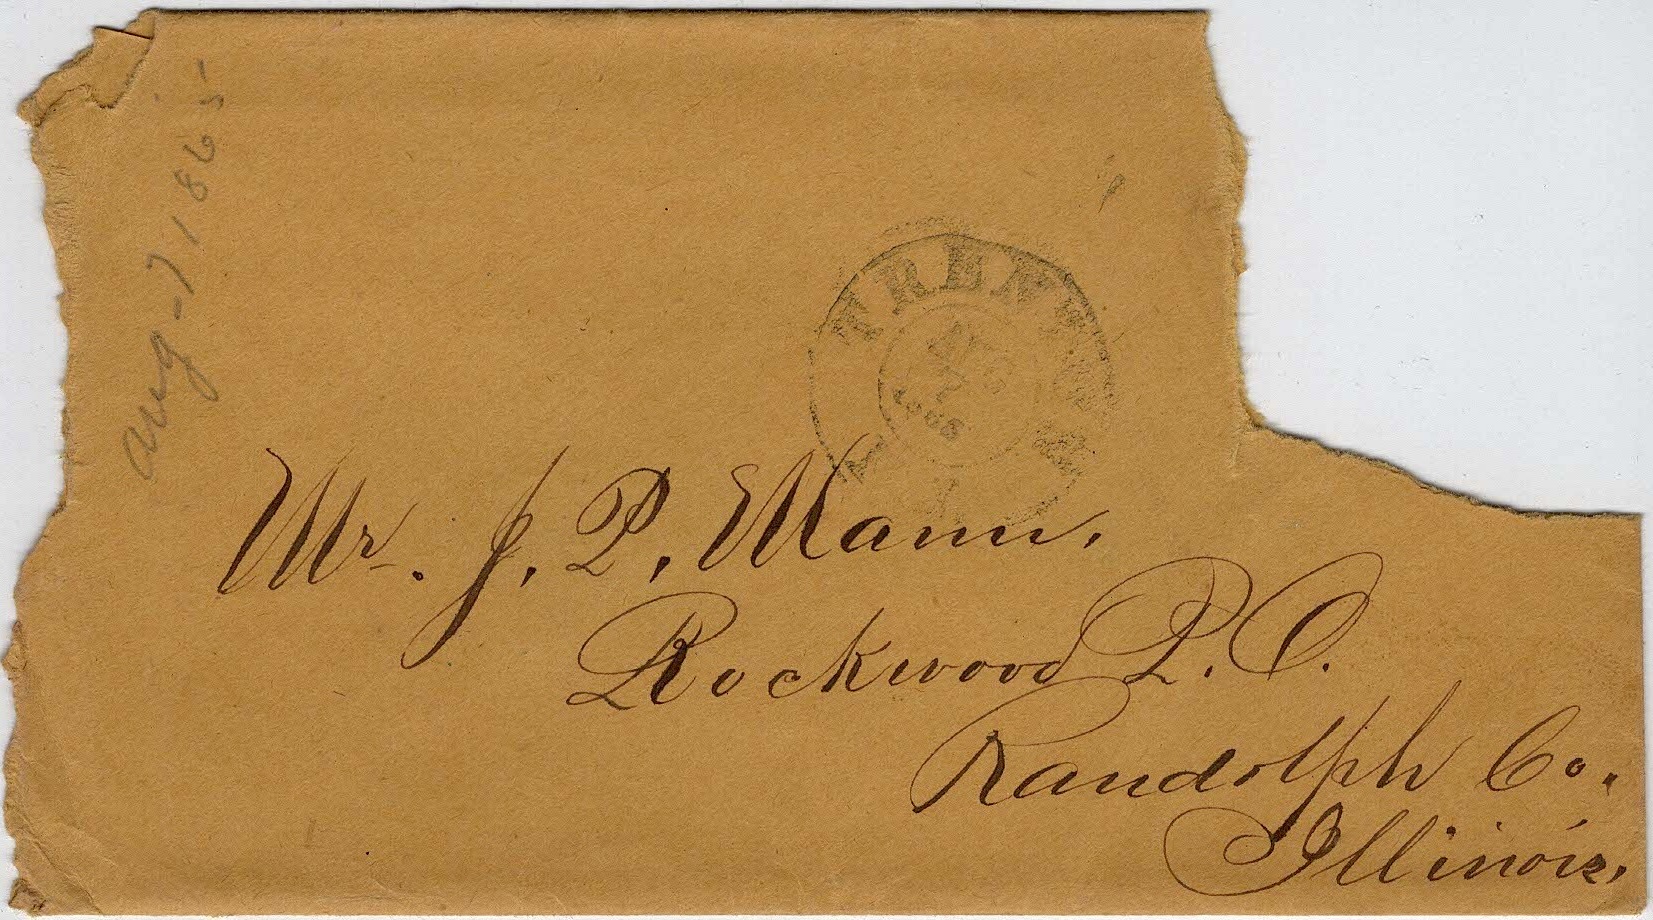 Aug - 7 1865
AUG
7
Mr. J. P. Mann,
Rockwood P. O.
Randolph Co.
Illinois.